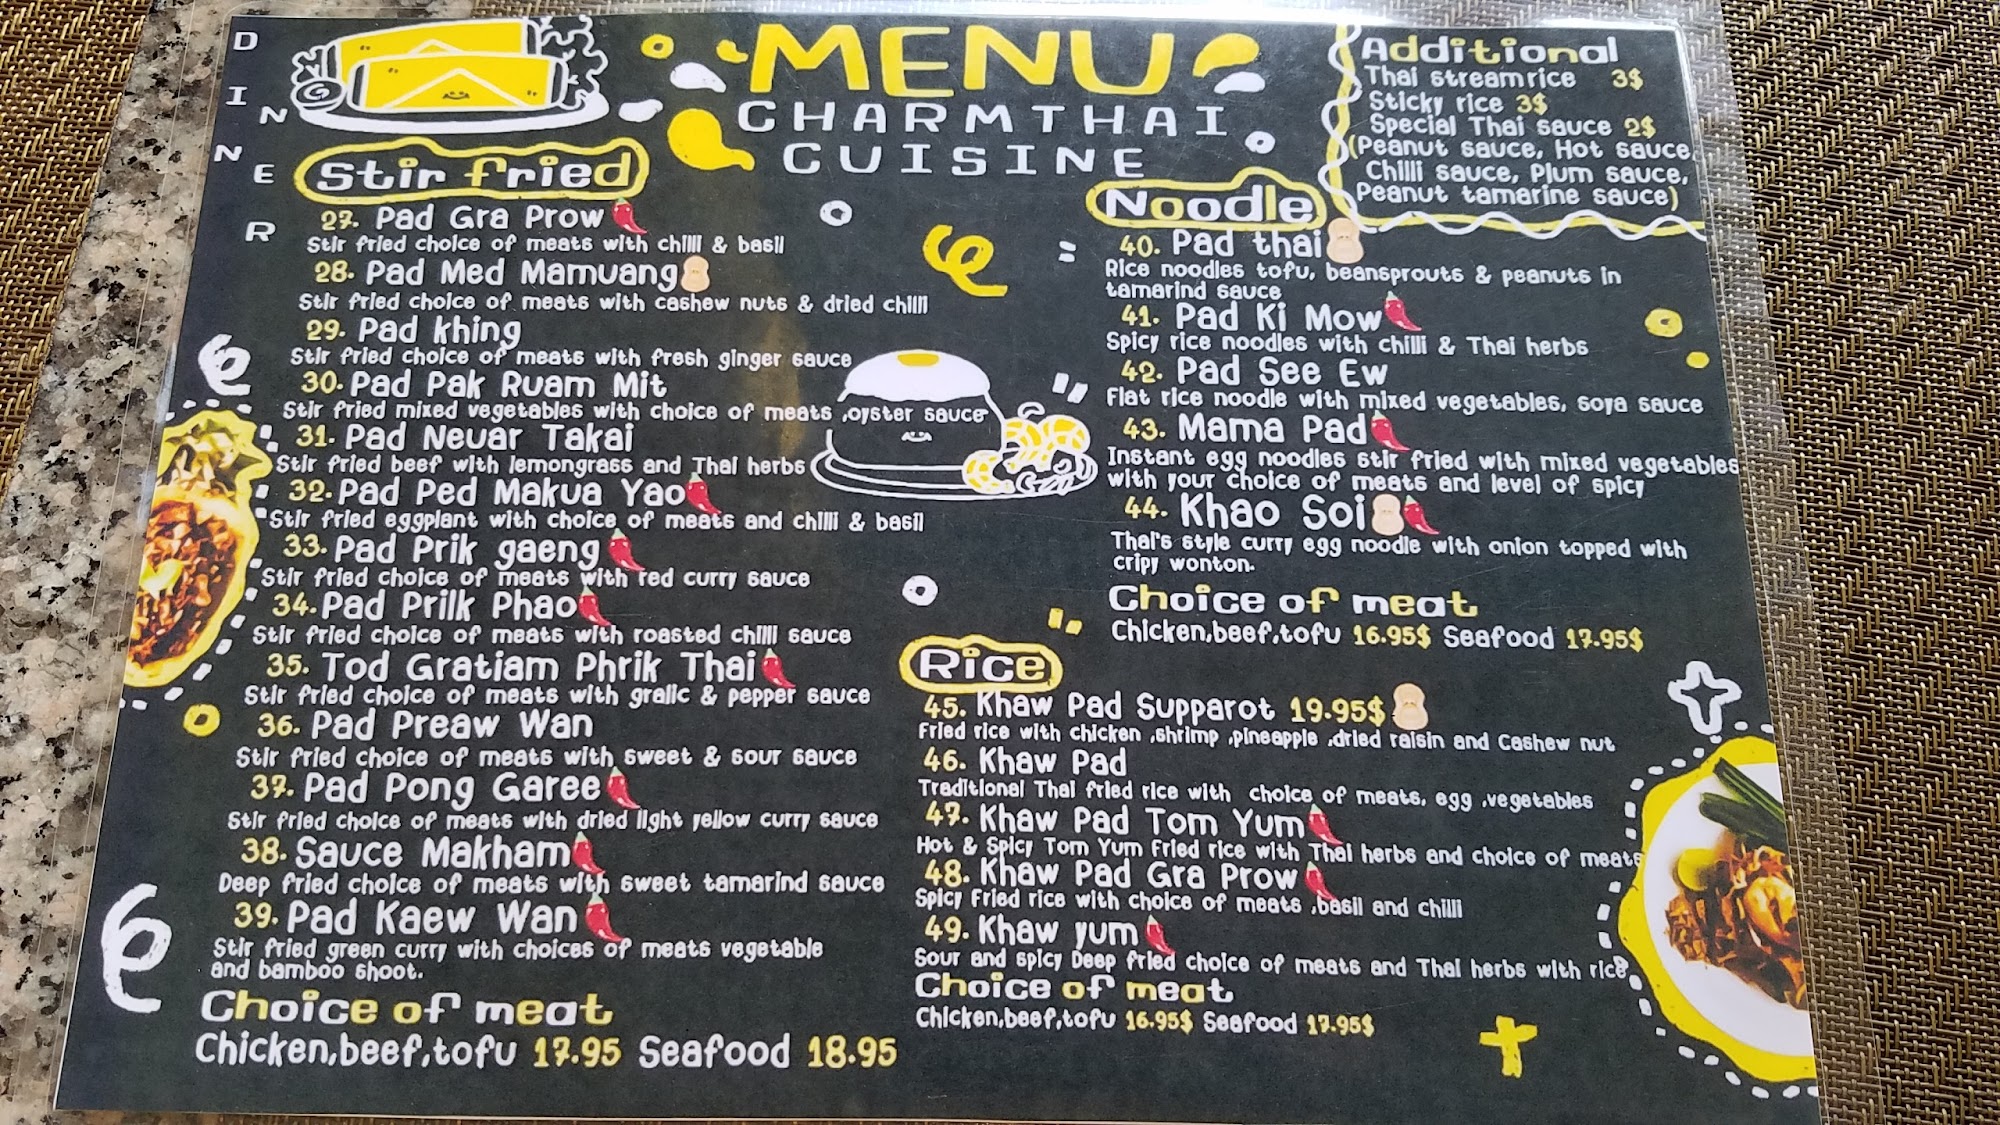 DINNER
MENU
CHARMTHAI
CUISINE
Additional
Thai streamrice 3$
Sticky rice 3$
Special Thai sauce 2$
(Peanut sauce, Hot sauce,
Chilli sauce, Plum sauce,
Peanut tamarine sauce)
Stir fried
27. Pad Gra Prow
Stir fried choice of meats with chilli & basil
28. Pad Med Mamuang
Stir fried choice of meats with cashew nuts & dried chilli
29. Pad khing
Stir fried choice of meats with fresh ginger sauce
30. Pad Pak Ruam Mit
Stir fried mixed vegetables with choice of meats ,oyster sauce
31. Pad Neuar Takai
Stir fried beef with lemongrass and Thai herbs
32. Pad Ped Makua Yao
Stir fried eggplant with choice of meats and chilli & basil
33. Pad Prik gaeng
Stir fried choice of meats with red curry sauce
34. Pad Prilk Phao
Stir fried choice of meats with roasted chilli sauce
35. Tod Gratiam Phrik Thai
Stir fried choice of meats with gralic & pepper sauce
36. Pad Preaw Wan
Stir fried choice of meats with sweet & sour sauce
37. Pad Pong Garee
Stir fried choice of meats with dried light yellow curry sauce
38. Sauce Makham
Deep fried choice of meats with sweet tamarind sauce
39. Pad Kaew Wan
Stir fried green curry with choices of meats vegetable
and bamboo shoot.
Choice of meat
Chicken,beef,tofu 17.95 Seafood 18.95
Noodle
40. Pad thai
Rice noodles tofu, beansprouts & peanuts in
tamarind sauce
41. Pad Ki Mow
Spicy rice noodles with chilli & Thai herbs
42. Pad See Ew
Flat rice noodle with mixed vegetables, soya sauce
43. Mama Pad
Instant egg noodles stir fried with mixed vegetables
with your choice of meats and level of spicy
44. Khao Soi
Thai's style curry egg noodle with onion topped with
cripy wonton.
Choice of meat
Chicken,beef,tofu 16.95$ Seafood 17.95$
Rice
45. Khaw Pad Supparot 19.95$
Fried rice with chicken ,shrimp ,pineapple ,dried raisin and Cashew nut
46. Khaw Pad
Traditional Thai fried rice with choice of meats, egg ,vegetables
47. Khaw Pad Tom Yum
Hot & Spicy Tom Yum Fried rice with Thai herbs and choice of meats
48. Khaw Pad Gra Prow
Spicy Fried rice with choice of meats ,basil and chilli
49. Khaw yum
Sour and spicy Deep fried choice of meats and Thai herbs with rice
Choice of meat
Chicken,beef,tofu 16.95$ Seafood 17.95$